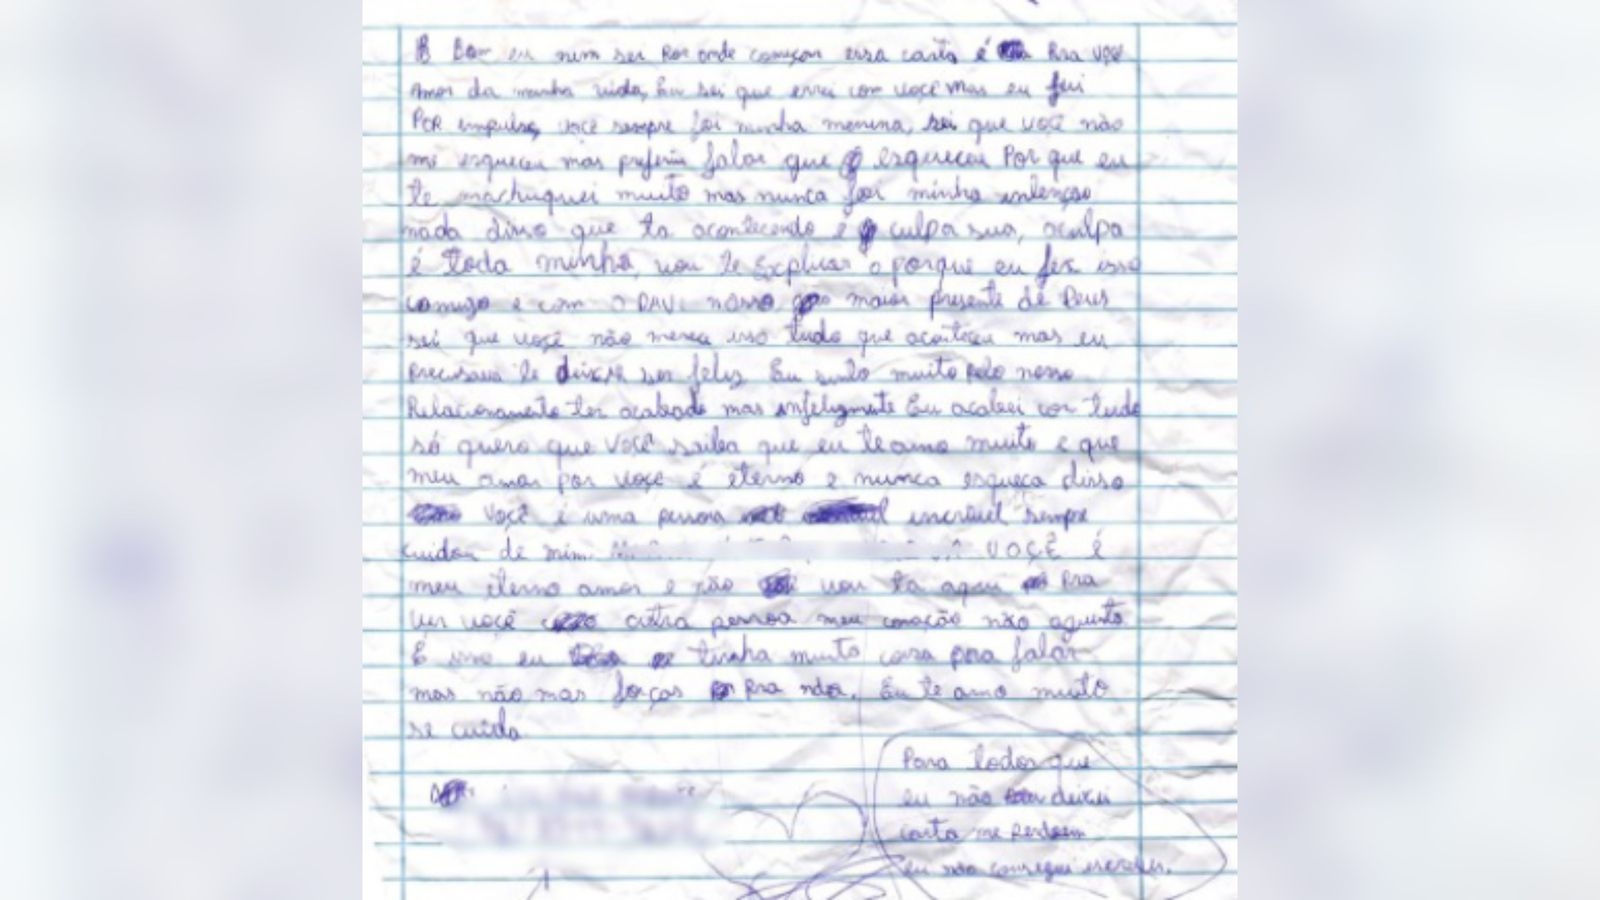 Bom eu nem sei por onde começar essa carta é pra você
Amor da minha vida, Eu sei que errei com você mas eu fui
POR impulso, você sempre foi minha menina, sei que você não
me esqueceu mas preferiu falar que esqueceu Por que eu
te machuquei muito mas nunca foi minha intenção
nada disso que ta acontecendo é culpa sua, aculpa
é toda minha, vou te Explicar o porque eu fez isso
comigo e com o DAVI nosso maior presente de Deus
sei que você não mereça isso tudo que aconteceu mas eu
precisava te deixar ser feliz Eu sinto muito pelo nosso
Relacionamento ter acabado mas infelizmente Eu acabei cor tudo
só quero que você saiba que eu te amo muito e que
meu amor por você é eterno e nunca esqueça disso
você é uma pessoa incrivel sempre
cuidou de mim. VOÇÊ é
meu eterno amor e não vou ta aqui pra
ver você outra pessoa meu coração não aguenta
É isso eu tinha muito coisa pora falar
mas não mas forças pra nda. Eu te amo muito
se cuida
Para todos que
eu não deixei
carta me perdoem
eu não consegui escrever.